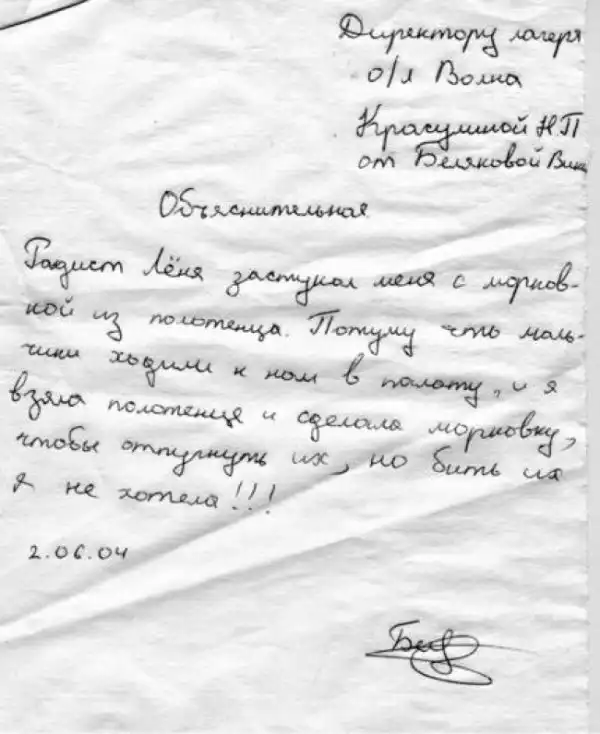 Директору лагеря
о/л Волна
Красулиной Н.П
от Беляковой Вик
Объяснительная
Радист Лёня застукал меня с морков-
кой из полотенца. Потуму что маль-
чики ходили к нам в палату, и я
взяла полотенце и сделала морковку,
чтобы отпугнуть их, но бить их
я не хотела!!!
2.06.04